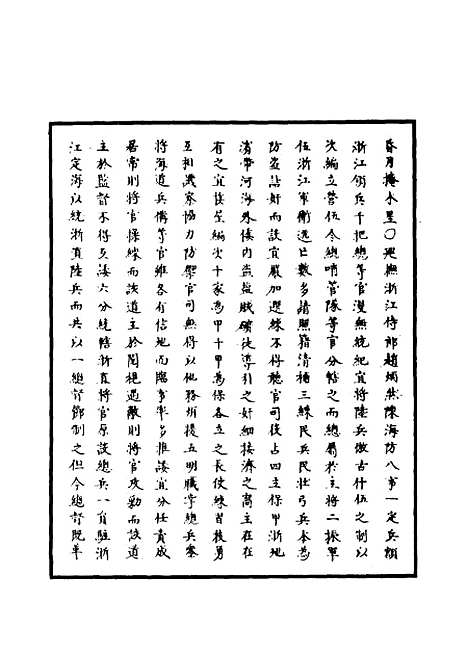 昏月掩水星○巡撫浙江侍郎趙炳然陳海防八事一定兵額
浙江領兵千把總等官漫無統紀宜將陸兵倣古什伍之制以
次編立營伍令總哨管隊等官分轄之而總屬於主將二振軍
伍浙江軍衛逃亡數多請照籍清補三練民兵民壯弓兵本為
防盜詰奸而設宜嚴加選練不得聽官司役占四主保甲浙地
濱帶河海外倭內盜鹽賊礦徒導引之奸細接濟之窩主在在
有之宜挨呈編次十家為甲十甲為保各立之長使練習技勇
互相譏察協力防禦官司無得以他務煩擾五明職掌總兵寨
將海道兵備等官雖各有信地而臨事率多推諉宜分任責成
居常則將官操練而該道主於閱視遇敵則將官攻勦而該道
主於監督不得互諉六分統轄浙直將官原設總兵一員駐浙
江定海以統浙直陸兵而共以一總督節制之但今總督既革